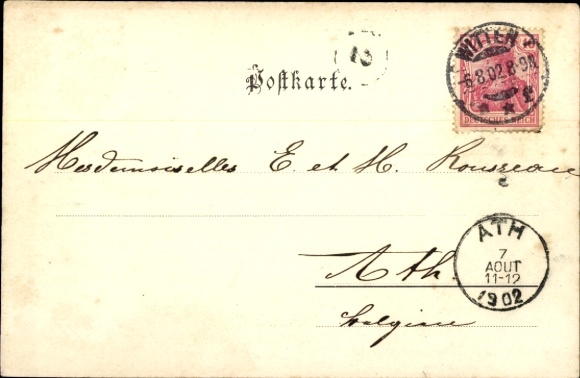 WITTEN
6.8.02.8-9N.
DEUTSCHES REICH
13
Postkarte.
Mesdemoiselles E. et H. Rousseau
Ath.
Belgien
ATH
7
AOUT
11-12
1902